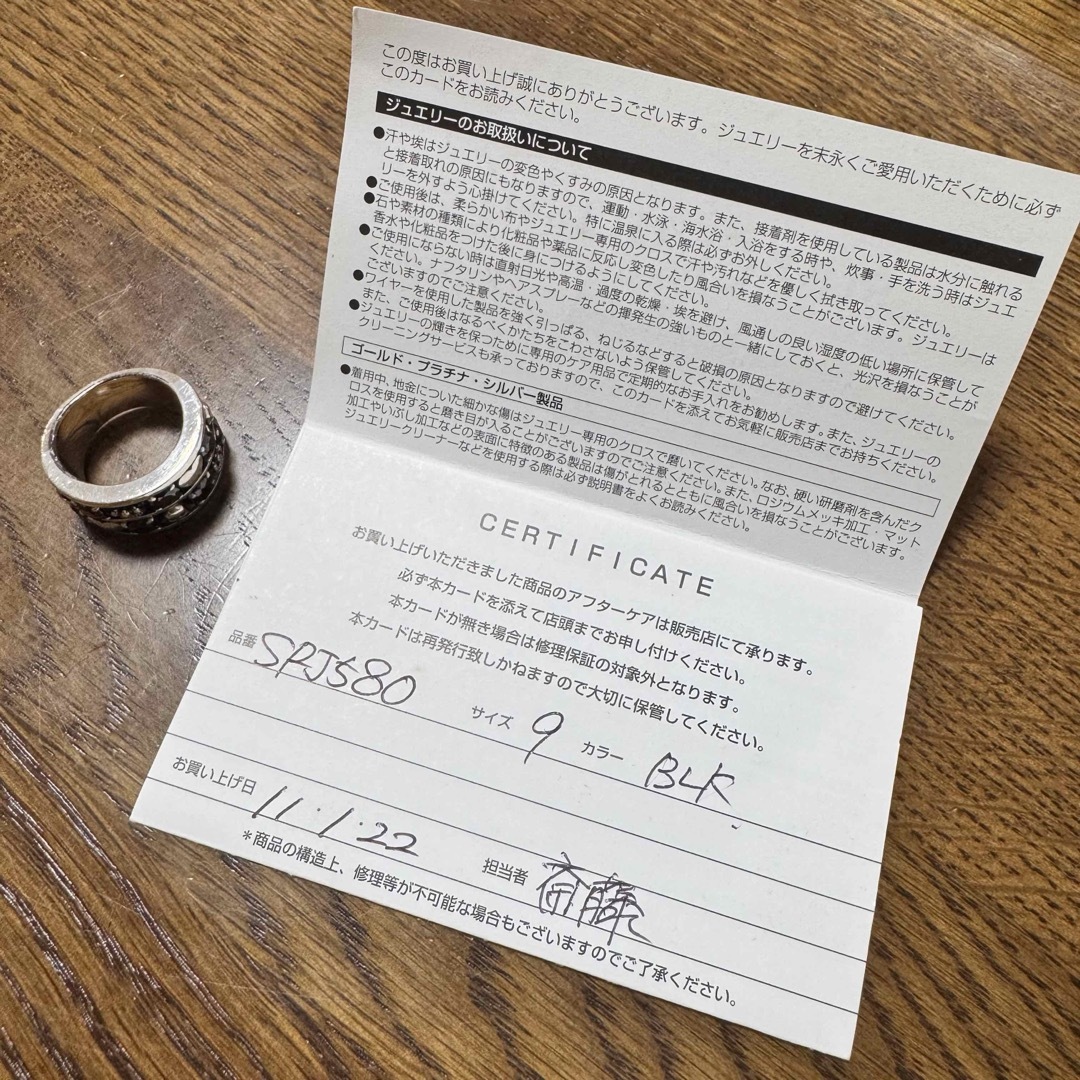 この度はお買い上げ誠にありがとうございます。ジュエリーを末永くご愛用いただくために必ず
このカードをお読みください。
ジュエリーのお取扱いについて
●汗や埃はジュエリーの変色やくすみの原因となります。また、接着剤を使用している製品は水分に触れる
と接着取れの原因にもなりますので、運動・水泳・海水浴・入浴をする時や、炊事・手を洗う時はジュエ
リーを外すよう心掛けてください。特に温泉に入る際は必ずお外しください。
●ご使用後は、柔らかい布やジュエリー専用のクロスで汗や汚れなどを優しく拭き取ってください。
●石や素材の種類により化粧品や薬品に反応し変色したり風合いを損なうことがございます。ジュエリーは
香水や化粧品をつけた後に身につけるようにしてください。
●ご使用にならない時は直射日光や高温・過度の乾燥・埃を避け、風通しの良い湿度の低い場所に保管して
ください。ナフタリンやヘアスプレーなどの揮発生の強いものと一緒にしておくと、光沢を損なうことが
ございますのでご注意ください。
●ワイヤーを使用した製品を強く引っぱる、ねじるなどすると破損の原因となりますので避けてください。
また、ご使用後はなるべくかたちをこわさないよう保管してください。
●ジュエリーの輝きを保つために専用のケア用品で定期的なお手入れをお勧めします。また、ジュエリーの
クリーニングサービスも承っておりますので、このカードを添えてお気軽に販売店までお持ちください。
ゴールド・プラチナ・シルバー製品
●着用中、地金についた細かな傷はジュエリー専用のクロスで磨いてください。なお、硬い研磨剤を含んだク
ロスを使用すると磨き目が入ることがございますのでご注意ください。また、ロジウムメッキ加工・マット
加工やいぶし加工などの表面に特徴のある製品は傷がとれるとともに風合いを損なうことがございます。
ジュエリークリーナーなどを使用する際は必ず説明書をよくお読みください。
CERTIFICATE
お買い上げいただきました商品のアフターケアは販売店にて承ります。
必ず本カードを添えて店頭までお申し付けください。
本カードが無き場合は修理保証の対象外となります。
本カードは再発行致しかねますので大切に保管してください。
品番 SRJS80 サイズ 9 カラー BLK
お買い上げ日 11・1・22 担当者 斎藤
*商品の構造上、修理等が不可能な場合もございますのでご了承ください。